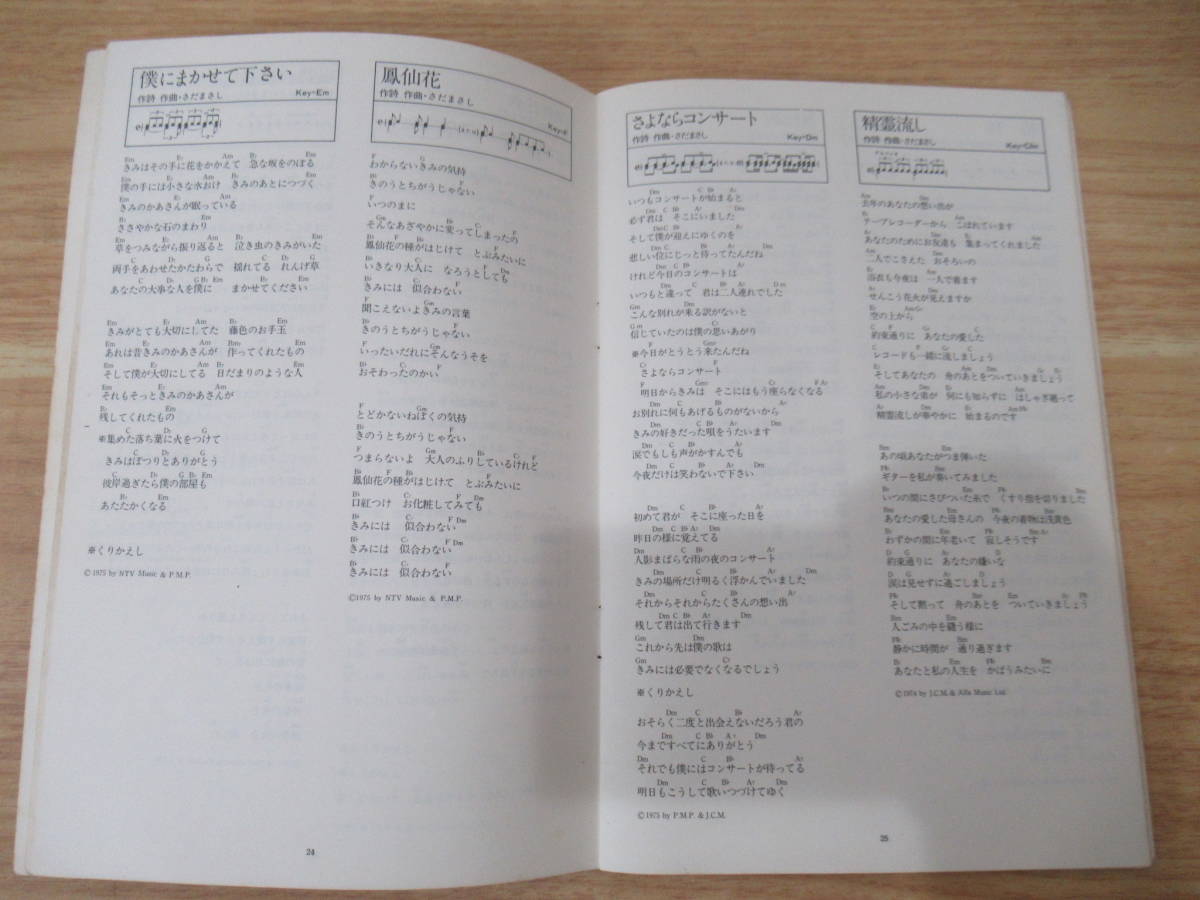 僕にまかせて下さい
作詩 作曲・さだまさし Key=Em
Em B7 Em Am B7 Em
きみはその手に花をかかえて 急な坂をのぼる
Em B7 Em Am B7 Em
僕の手には小さな水おけ きみのあとにつづく
Em B7 E7 Am
きみのかあさんが眠っている
B7 Em
ささやかな石のまわり
Em B7 Em Am B7 Em
草をつみながら振り返ると 泣き虫のきみがいた
C D7 G C D7 G
両手をあわせたかたわらで 揺れてる れんげ草
C D7 G B7 Em C B7 Em
あなたの大事な人を僕に まかせてください
きみがとても大切にしてた 藤色のお手玉
あれは昔きみのかあさんが 作ってくれたもの
そして僕が大切にしてる 日だまりのような人
それもそっときみのかあさんが
B7 Em
残してくれたもの
C D7 G
※集めた落ち葉に火をつけて
C D7 G
きみはぽつりとありがとう
C D7 G B7 Em
彼岸過ぎたら僕の部屋も
Am B7 Em
あたたかくなる
※くりかえし
©1975 by NTV Music & P.M.P.
24
鳳仙花
作詩 作曲・さだまさし Key=F
F G
わからないきみの気持
B♭ C7 F
きのうとちがうじゃない
F
いつのまに
Gm B♭ C7 F
そんなあざやかに変ってしまったの
鳳仙花の種がはじけて とぶみたいに
いきなり大人に なろうとしても
B♭ C7 F
きみには 似合わない
F Gm
聞こえないよきみの言葉
B♭ C7 F
きのうとちがうじゃない
F Gm
いったいだれにそんなうそを
B♭ C7 F
おそわったのかい
F Gm
とどかないねぼくの気持
B♭ C7 F
きのうとちがうじゃない
つまらないよ 大人のふりしているけれど
鳳仙花の種がはじけて とぶみたいに
B♭ C7 F Dm
口紅つけ お化粧してみても
B♭ C7 F Dm
きみには 似合わない
B♭ C7 F Dm
きみには 似合わない
B♭ C7 F
きみには 似合わない
©1975 by NTV Music & P.M.P.
さよならコンサート
作詩 作曲・さだまさし Key=Dm
Dm C B♭ A7
いつもコンサートが始まると
Dm C B♭ A7 Dm
必ず君は そこにいました
Dm C B♭ A7
そして僕が迎えにゆくのを
Dm C B♭ A7 Dm
悲しい位にじっと待ってたんだね
Dm C B♭ A7
けれど今日のコンサートは
Dm C B♭ A7 Dm
いつもと違って 君は二人連れでした
Gm Dm
こんな別れが来る訳がないと
Gm C7
信じていたのは僕の思いあがり
F Gm7
※今日がとうとう来たんだね
C7 F
さよならコンサート
F Gm7 C7 F A7
明日からきみは そこにはもう座らなくなる
Dm C B♭ A7
お別れに何もあげるものがないから
Dm C B♭ A7 Dm
きみの好きだった唄をうたいます
Dm C B♭ A7
涙でもしも声がかすんでも
Dm C B♭ A7 Dm
今夜だけは笑わないで下さい
Dm C B♭ A7
初めて君が そこに座った日を
Dm C B♭ A7 Dm
昨日の様に覚えてる
Dm C B♭ A7
人影まばらな雨の夜のコンサート
Dm C B♭ A7 Dm
きみの場所だけ明るく浮かんでいました
Dm C B♭ A7
それからそれからたくさんの想い出
Dm C B♭ A7 Dm
残して君は出て行きます
Gm Dm
これから先は僕の歌は
Gm C7
きみには必要でなくなるでしょう
※くりかえし
Dm C B♭ A7
おそらく二度と出会えないだろう君の
Dm C B♭ A7 Dm
今まですべてにありがとう
Dm C B♭ A7
それでも僕にはコンサートが待ってる
Dm C B♭ A7 Dm
明日もこうして歌いつづけてゆく
©1975 by P.M.P. & J.C.M.
精霊流し
作詩 作曲・さだまさし
アルペジオ
Am
去年のあなたの想い出が
テープレコーダーから こぼれています
あなたのためにお友達も 集まってくれました
二人でこさえた おそろいの
浴衣も今夜は 一人で着ます
せんこう花火が見えますか
空の上から
約束通りに あなたの愛した
レコードも一緒に流しましょう
そしてあなたの 舟のあとをついていきましょう
私の小さな弟が 何にも知らずに はしゃぎ廻って
精霊流しが華やかに 始まるのです
Bm
あの頃あなたがつま弾いた
ギターを私が奏いてみました
いつの間にさびついた糸で くすり指を切りました
あなたの愛した母さんの 今夜の着物は浅黄色
わずかの間に年老いて 寂しそうです
約束通りに あなたの嫌いな
涙は見せずに過ごしましょう
そして黙って 舟のあとを ついていきましょう
人ごみの中を縫う様に
静かに時間が 通り過ぎます
あなたと私の人生を かばうみたいに
©1974 by J.C.M. & Alfa Music Ltd.
25